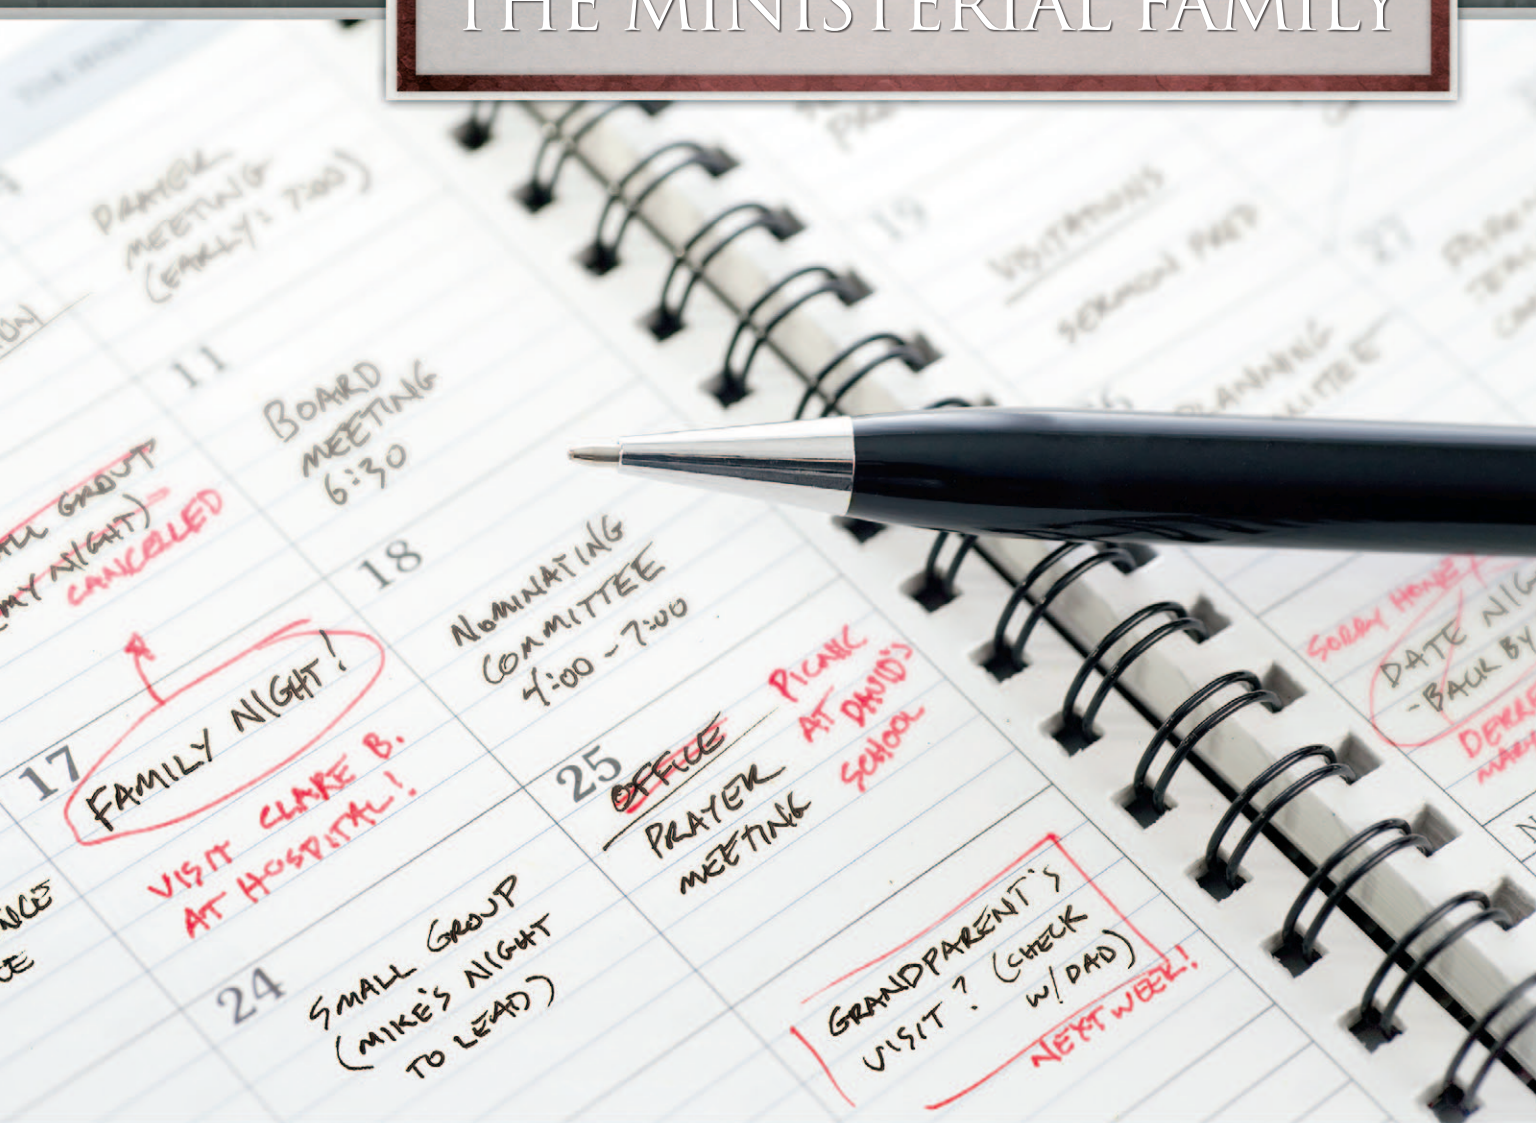 THE MINISTERIAL FAMILY
PRAYER
MEETING
(EARLY: 7:00)
11
BOARD
MEETING
6:30
GROUP
NIGHT)
CANCELLED
18
NOMINATING
COMMITTEE
4:00 - 7:00
17
FAMILY NIGHT!
VISIT CLARE B.
AT HOSPITAL!
25
OFFICE
PRAYER
MEETING
PICNIC
AT DAVID'S
SCHOOL
24
SMALL GROUP
(MIKE'S NIGHT
TO LEAD)
GRANDPARENT'S
VISIT? (CHECK
W/ DAD)
NEXT WEEK!
19
VISITATIONS
SERMON PREP
PLANNING
SORRY HONEY
DATE
- BACK BY